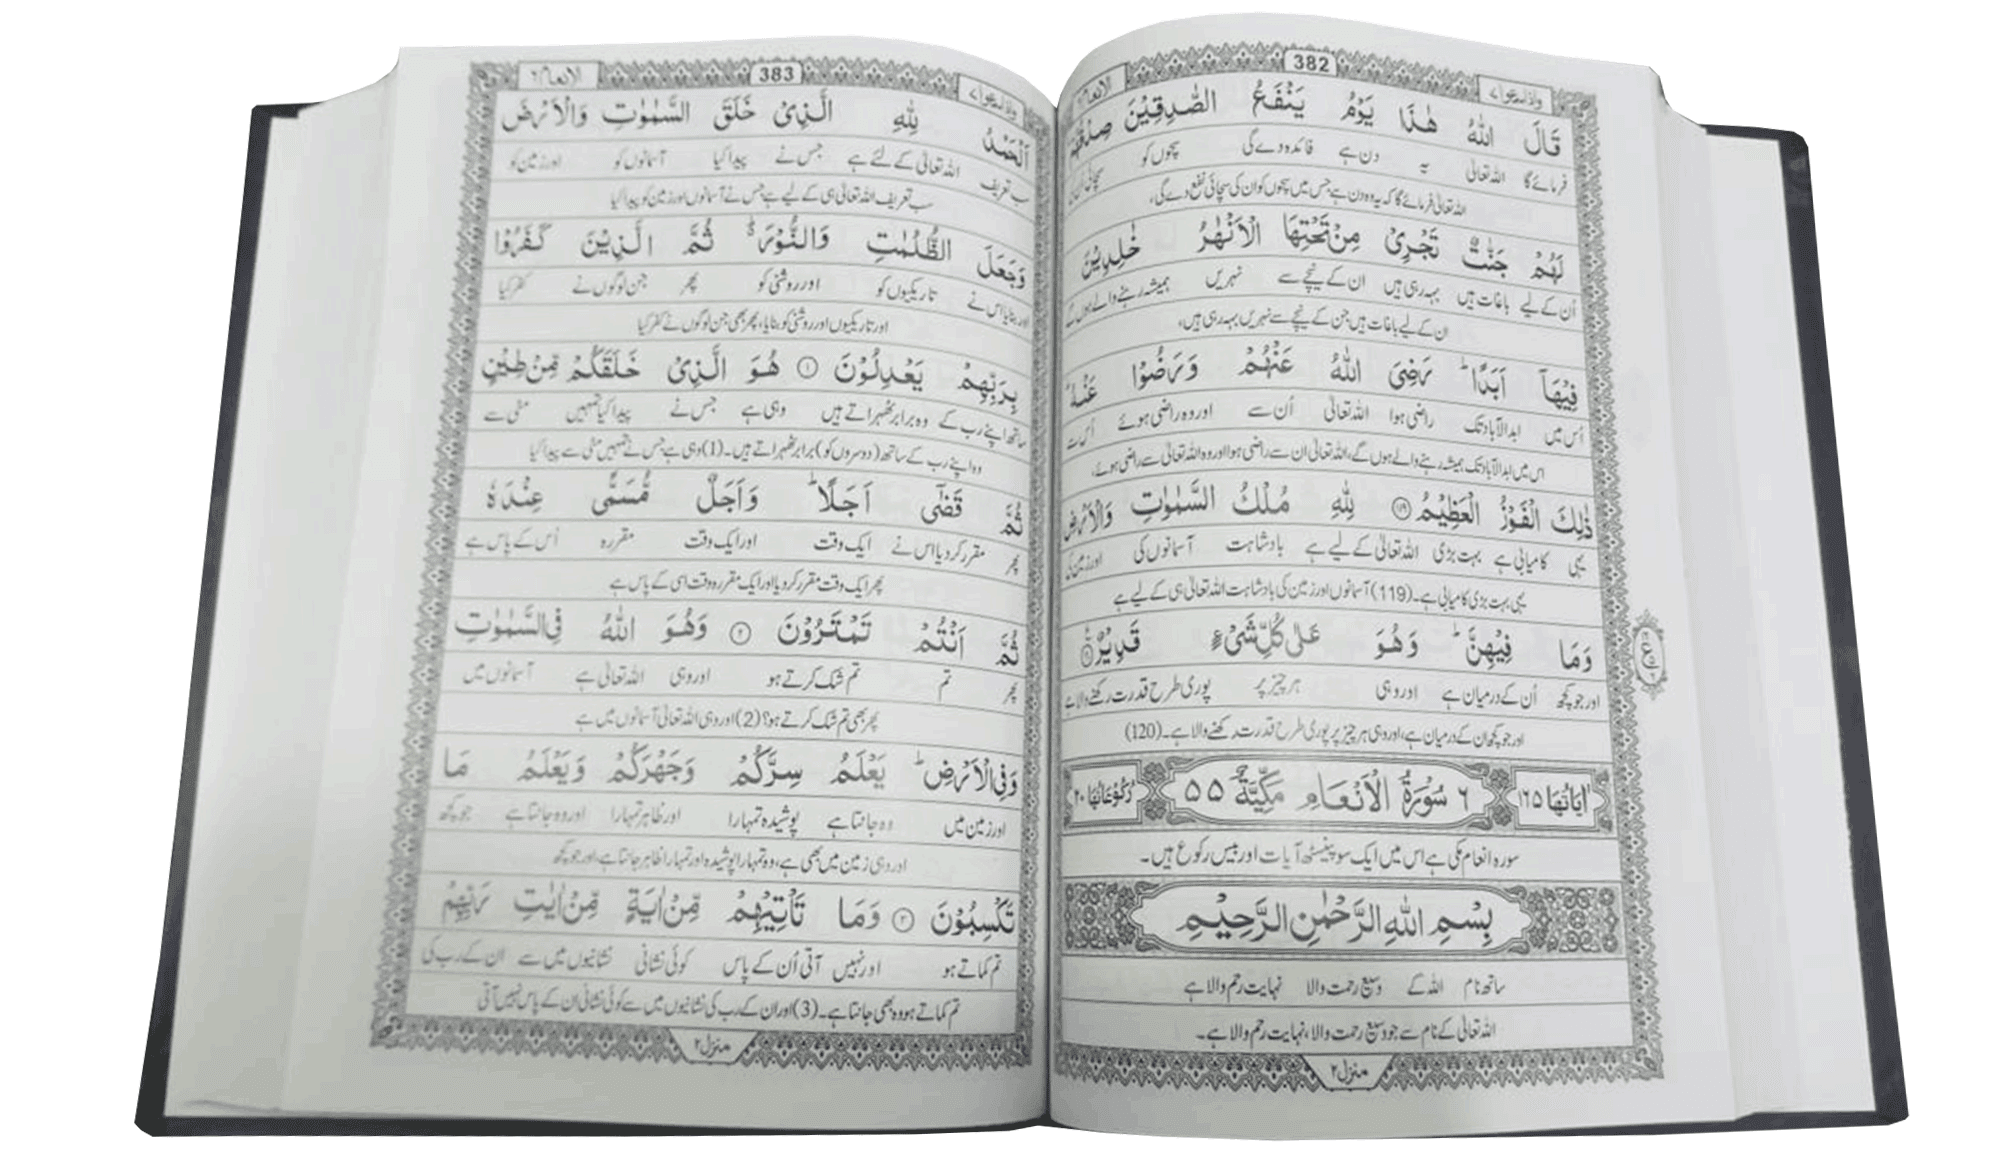 واذاسمعوا٧
382
الانعام٦
قَالَ اللّٰهُ هٰذَا يَوْمُ يَنْفَعُ الصّٰدِقِيْنَ صِدْقُهُمْ
فرمائے گا اللہ تعالیٰ یہ دن ہے فائدہ دے گی سچوں کو سچائی ان کی
اللہ تعالیٰ فرمائے گا کہ یہ وہ دن ہے جس میں سچوں کو ان کی سچائی نفع دے گی،
لَهُمْ جَنّٰتٌ تَجْرِيْ مِنْ تَحْتِهَا الْاَنْهٰرُ خٰلِدِيْنَ
اُن کے لیے باغات ہیں بہہ رہی ہیں ان کے نیچے سے نہریں ہمیشہ رہنے والے ہوں گے
ان کے لیے باغات ہیں جن کے نیچے سے نہریں بہہ رہی ہیں،
فِيْهَاۤ اَبَدًا ؕ رَضِيَ اللّٰهُ عَنْهُمْ وَرَضُوْا عَنْهُ ؕ
اُس میں ابدالآباد تک راضی ہوا اللہ تعالیٰ اُن سے اور وہ راضی ہوئے اُس سے
اس میں ابدالآباد تک ہمیشہ رہنے والے ہوں گے، اللہ تعالیٰ ان سے راضی ہوا اور وہ اللہ تعالیٰ سے راضی ہوئے،
ذٰلِكَ الْفَوْزُ الْعَظِيْمُ ۝١١٩ لِلّٰهِ مُلْكُ السَّمٰوٰتِ وَالْاَرْضِ
یہی کامیابی ہے بہت بڑی اللہ تعالیٰ کے لیے ہے بادشاہت آسمانوں کی اور زمین کی
یہی بہت بڑی کامیابی ہے۔(119) آسمانوں اور زمین کی بادشاہت اللہ تعالیٰ ہی کے لیے ہے
وَمَا فِيْهِنَّ ؕ وَهُوَ عَلٰى كُلِّ شَيْءٍ قَدِيْرٌ ۝١٢٠
اور جو کچھ اُن کے درمیان ہے اور وہی ہر چیز پر پوری طرح قدرت رکھنے والا ہے
اور جو کچھ ان کے درمیان ہے، اور وہی ہر چیز پر پوری طرح قدرت رکھنے والا ہے۔(120)
اٰيَاتُهَا ١٦٥ ٦ سُوْرَةُ الْاَنْعَامِ مَكِّيَّةٌ ٥٥ رُكُوْعَاتُهَا ٢٠
سورہ انعام مکی ہے اس میں ایک سو پینسٹھ آیات اور بیس رکوع ہیں۔
بِسْمِ اللّٰهِ الرَّحْمٰنِ الرَّحِيْمِ
ساتھ نام اللہ کے وسیع رحمت والا نہایت رحم والا ہے
اللہ تعالیٰ کے نام سے جو وسیع رحمت والا، نہایت رحم والا ہے۔
منزل٢
واذاسمعوا٧
383
الانعام٦
اَلْحَمْدُ لِلّٰهِ الَّذِيْ خَلَقَ السَّمٰوٰتِ وَالْاَرْضَ
سب تعریف اللہ تعالیٰ کے لئے ہے جس نے پیدا کیا آسمانوں کو اور زمین کو
سب تعریف اللہ تعالیٰ ہی کے لیے ہے جس نے آسمانوں اور زمین کو پیدا کیا
وَجَعَلَ الظُّلُمٰتِ وَالنُّوْرَ ؕ ثُمَّ الَّذِيْنَ كَفَرُوْا
اور بنایا اس نے تاریکیوں کو اور روشنی کو پھر جن لوگوں نے کفر کیا
اور تاریکیوں اور روشنی کو بنایا، پھر بھی جن لوگوں نے کفر کیا
بِرَبِّهِمْ يَعْدِلُوْنَ ۝١ هُوَ الَّذِيْ خَلَقَكُمْ مِّنْ طِيْنٍ
ساتھ اپنے رب کے وہ برابر ٹھہراتے ہیں وہی ہے جس نے پیدا کیا تمہیں مٹی سے
وہ اپنے رب کے ساتھ (دوسروں کو) برابر ٹھہراتے ہیں۔(1) وہی ہے جس نے تمہیں مٹی سے پیدا کیا
ثُمَّ قَضٰۤى اَجَلًا ؕ وَاَجَلٌ مُّسَمًّى عِنْدَهٗ
پھر مقرر کر دیا اس نے ایک وقت اور ایک وقت مقررہ اُس کے پاس ہے
پھر ایک وقت مقرر کر دیا اور ایک مقررہ وقت اسی کے پاس ہے
ثُمَّ اَنْتُمْ تَمْتَرُوْنَ ۝٢ وَهُوَ اللّٰهُ فِي السَّمٰوٰتِ
پھر تم تم شک کرتے ہو اور وہی اللہ تعالیٰ ہے آسمانوں میں
پھر بھی تم شک کرتے ہو؟(2) اور وہی اللہ تعالیٰ آسمانوں میں ہے
وَفِي الْاَرْضِ ؕ يَعْلَمُ سِرَّكُمْ وَجَهْرَكُمْ وَيَعْلَمُ مَا
اور زمین میں وہ جانتا ہے پوشیدہ تمہارا اور ظاہر تمہارا اور وہ جانتا ہے جو کچھ
اور وہی زمین میں بھی ہے، وہ تمہارا پوشیدہ اور تمہارا ظاہر جانتا ہے، اور جو کچھ
تَكْسِبُوْنَ ۝٣ وَمَا تَاْتِيْهِمْ مِّنْ اٰيَةٍ مِّنْ اٰيٰتِ رَبِّهِمْ
تم کماتے ہو اور نہیں آتی اُن کے پاس کوئی نشانی نشانیوں میں سے ان کے رب کی
تم کماتے ہو وہ بھی جانتا ہے۔(3) اور ان کے رب کی نشانیوں میں سے کوئی نشانی ان کے پاس نہیں آتی
منزل٢